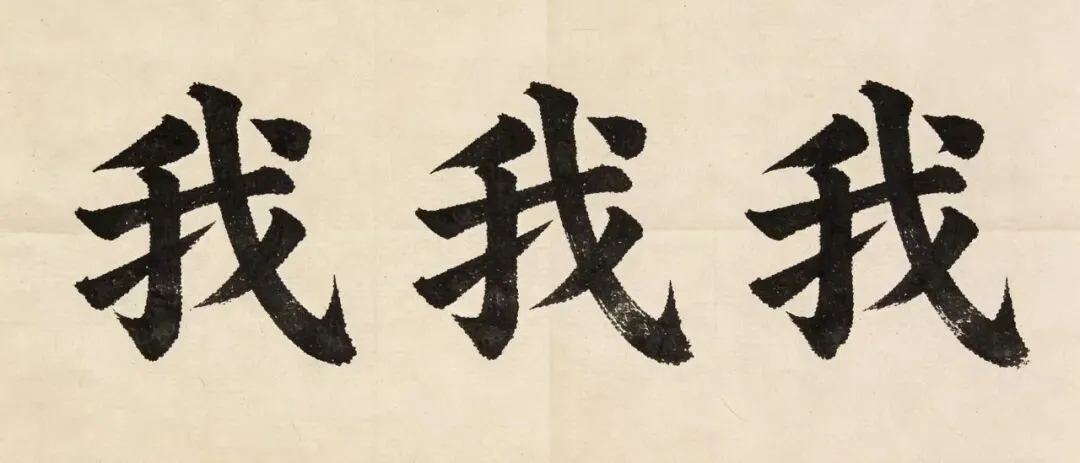 我我我